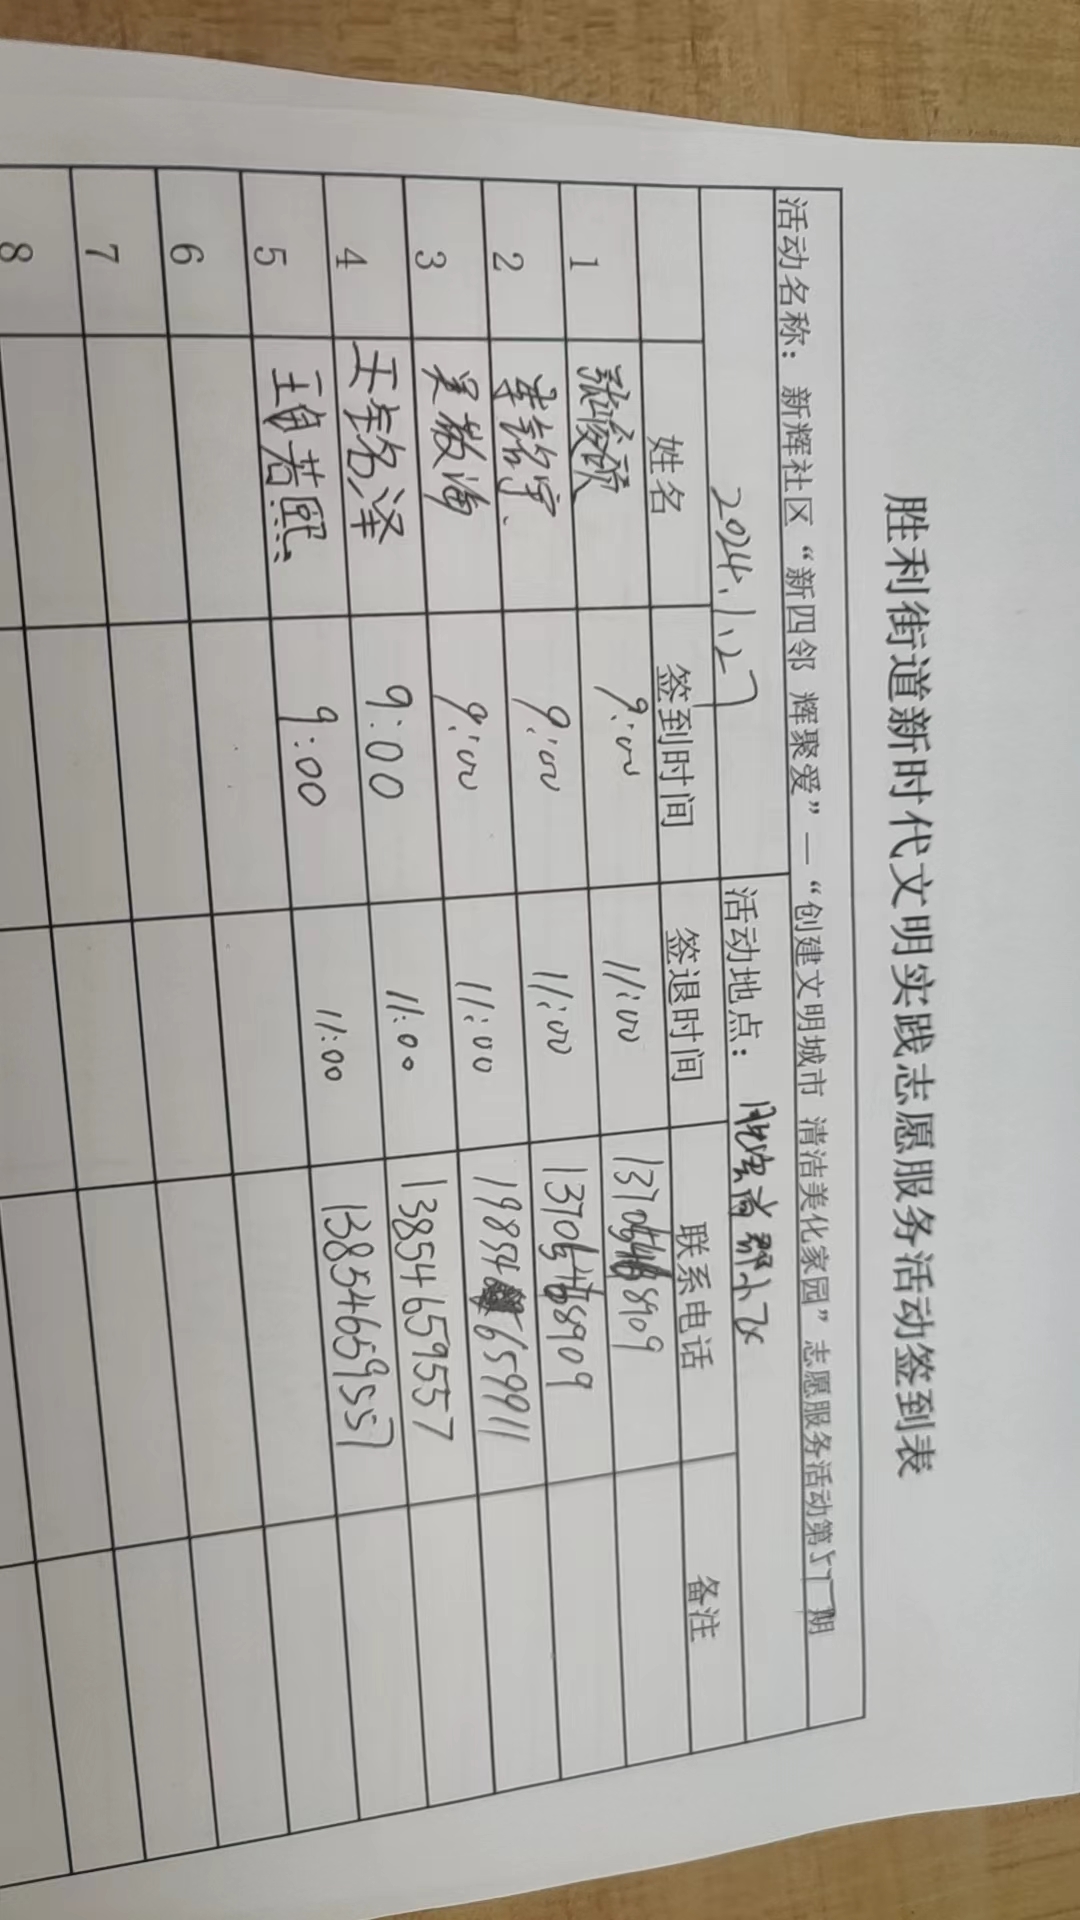 胜利街道新时代文明实践志愿服务活动签到表
活动名称：新辉社区“新四邻 辉聚爱”—“创建文明城市 清洁美化家园”志愿服务活动第 期
2024.1.27 活动地点：
姓名 签到时间 签退时间 联系电话 备注
1 张峻硕 9:00 11:00
2 李铭宇 9:00 11:00
3 吴敬海 9:00 11:00
4 王铭泽 9:00 11:00 13854659557
5 若熙 9:00 11:00 13854659557
6
7
8